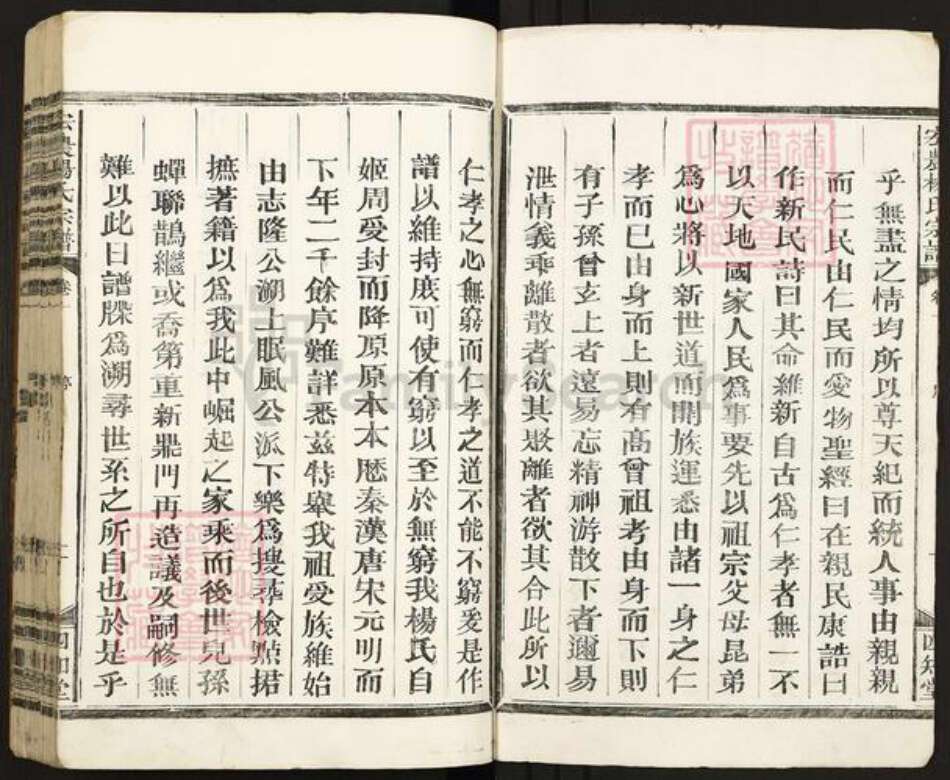 乎無盡之情均所以尊天紀而統人事由親親
而仁民由仁民而愛物聖經曰在親民康誥曰
作新民詩曰其命維新自古爲仁孝者無一不
以天地國家人民爲事要先以祖宗父母昆弟
爲心將以新世道而開族運悉由諸一身之仁
孝而已由身而上則有高曾祖考由身而下則
有子孫曾玄上者遠易忘精神游散下者邇易
泄情義乖離散者欲其聚離者欲其合此所以
仁孝之心無窮而仁孝之道不能不窮爰是作
譜以維持庶可使有窮以至於無窮我楊氏自
姬周受封而降原原本本歷秦漢唐宋元明而
下年二千餘序難詳悉茲特舉我祖受族維始
由志隆公溯上眠風公派下樂爲搜尋檢點捃
摭著籍以爲我此中崛起之家乘而後世兒孫
蟬聯鵲繼或喬第重新鼎門再造議及嗣修無
難以此曰譜牒爲溯尋世系之所自也於是乎
宏農楊氏宗譜
卷
序
四知堂
FamilySearch